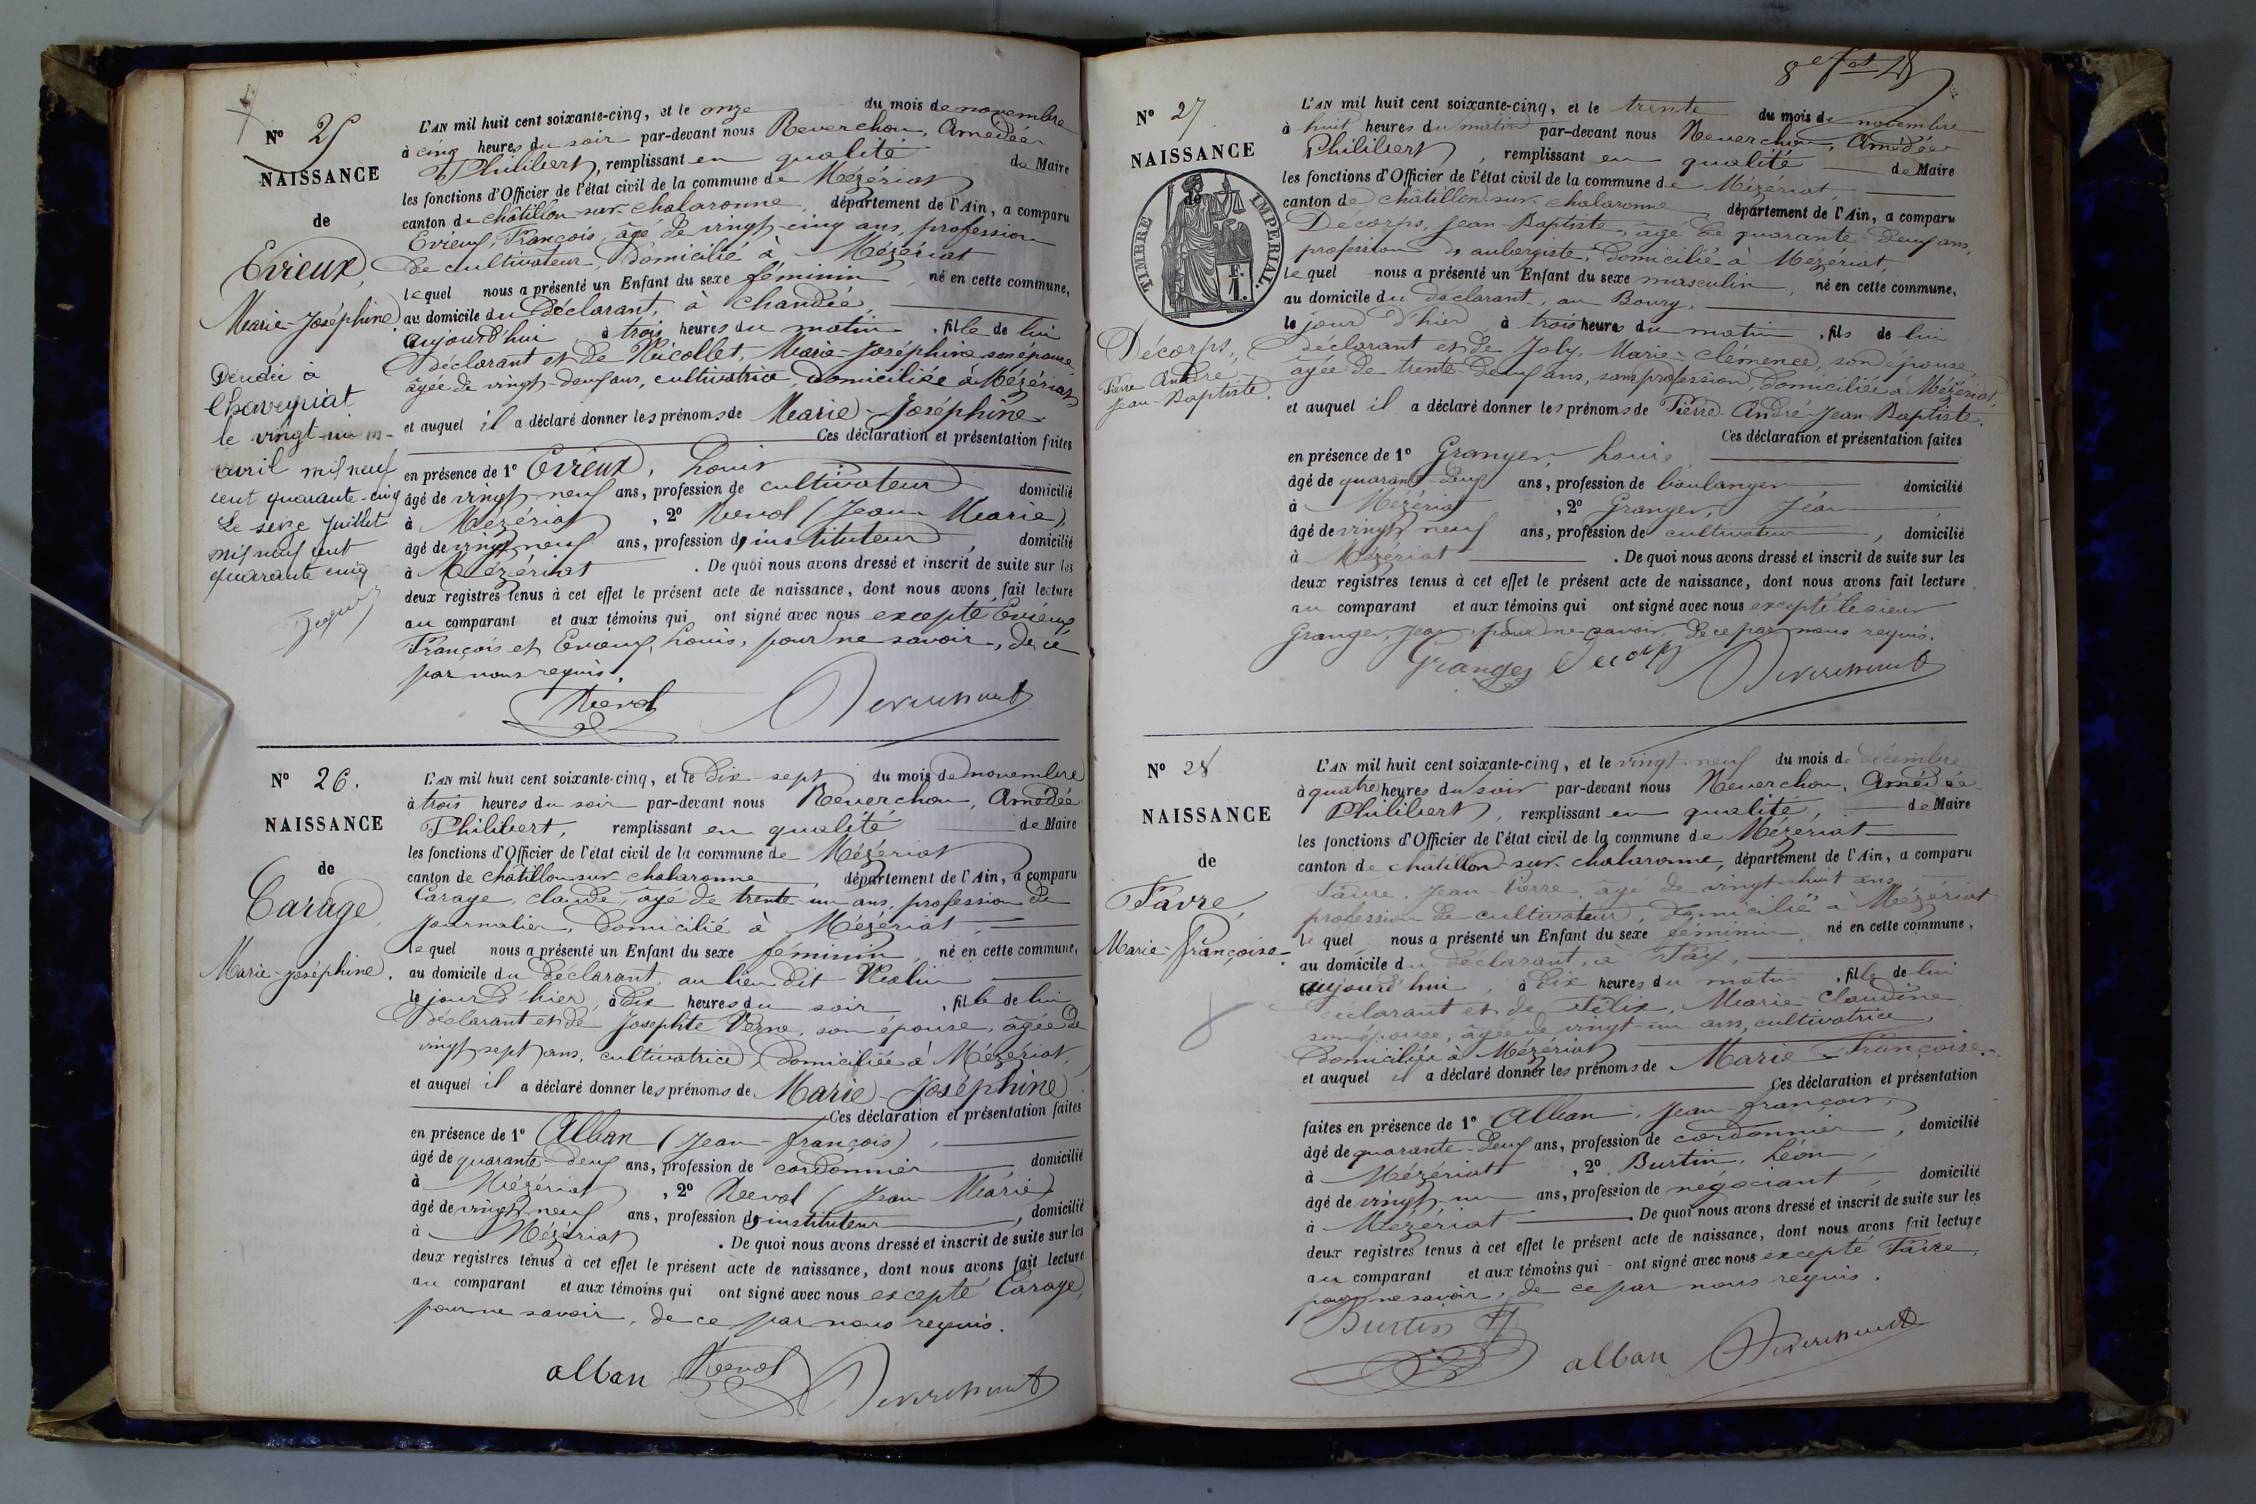 Nº 25
NAISSANCE
de
Evieux,
Marie-Joséphine.
Décédée à
Chaveyriat
le vingt-un
avril mil neuf
cent quarante-cinq
Le seize Juillet
mil neuf cent
quarante cinq
L'AN mil huit cent soixante-cinq, et le onze du mois de novembre
à cinq heures du soir par-devant nous Reverchon, Amédée
Philibert, remplissant en qualité de Maire
les fonctions d'Officier de l'état civil de la commune de Mézériat
canton de châtillon-sur-chalaronne, département de l'Ain, a comparu
Evieux, François, âgé de vingt-cinq ans, profession
de cultivateur, domicilié à Mézériat
lequel nous a présenté un Enfant du sexe féminin, né en cette commune,
au domicile du Déclarant, à Chandée,
aujourd'hui à trois heures du matin, fille de lui
déclarant et de Nicollet, Marie-Joséphine son épouse,
âgée de vingt-deux ans, cultivatrice, domiciliée à Mézériat
et auquel il a déclaré donner les prénoms de Marie-Joséphine
Ces déclaration et présentation faites
en présence de 1º Evieux, Louis
âgé de vingt neuf ans, profession de cultivateur domicilié
à Mézériat, 2º Nevol (Jean Marie),
âgé de vingt neuf ans, profession d'instituteur, domicilié
à Mézériat. De quoi nous avons dressé et inscrit de suite sur les
deux registres tenus à cet effet le présent acte de naissance, dont nous avons fait lecture
au comparant et aux témoins qui ont signé avec nous excepté Evieux
François et Evieux, Louis, pour ne savoir, de ce
par nous requis.
Nevol
Nº 26.
NAISSANCE
de
Carage,
Marie-Joséphine.
L'AN mil huit cent soixante-cinq, et le Dix-sept du mois de novembre
à trois heures du soir par-devant nous Reverchon, Amédée
Philibert, remplissant en qualité de Maire
les fonctions d'Officier de l'état civil de la commune de Mézériat
canton de châtillon-sur-chalaronne, département de l'Ain, a comparu
Carage, claude, âgé de trente-un ans, profession de
journalier, domicilié à Mézériat,
lequel nous a présenté un Enfant du sexe féminin, né en cette commune,
au domicile du Déclarant, au lieu dit
le jour d'hier, à Dix heures du soir, fille de lui
déclarant et de Josephte Verne, son épouse, âgée de
vingt sept ans, cultivatrice, domiciliée à Mézériat,
et auquel il a déclaré donner les prénoms de Marie-Joséphine
Ces déclaration et présentation faites
en présence de 1º Alban (Jean-françois),
âgé de quarante-deux ans, profession de cordonnier domicilié
à Mézériat, 2º Nevol (Jean Marie)
âgé de vingt neuf ans, profession d'instituteur, domicilié
à Mézériat. De quoi nous avons dressé et inscrit de suite sur les
deux registres tenus à cet effet le présent acte de naissance, dont nous avons fait lecture
au comparant et aux témoins qui ont signé avec nous excepté Carage,
pour ne savoir, de ce par nous requis.
alban Nevol
Nº 27
NAISSANCE
de
TIMBRE IMPERIAL.
1 F.
Décorps,
Pierre André
Jean-Baptiste.
L'AN mil huit cent soixante-cinq, et le trente du mois de novembre
à huit heures du matin par-devant nous Reverchon, Amédée
Philibert, remplissant en qualité de Maire
les fonctions d'Officier de l'état civil de la commune de Mézériat,
canton de châtillon-sur-chalaronne, département de l'Ain, a comparu
Décorps, Jean-Baptiste, âgé de quarante-deux ans,
profession d'aubergiste, domicilié à Mézériat,
lequel nous a présenté un Enfant du sexe masculin, né en cette commune,
au domicile du déclarant, au Bourg,
le jour d'hier à trois heures du matin, fils de lui
déclarant et de Joly, Marie-clémence, son épouse,
âgée de trente-deux ans, sans profession, domiciliée à Mézériat,
et auquel il a déclaré donner les prénoms de Pierre-André-Jean-Baptiste.
Ces déclaration et présentation faites
en présence de 1º Granger, Louis,
âgé de quarante-deux ans, profession de boulanger domicilié
à Mézériat, 2º Granger, Jean
âgé de vingt neuf ans, profession de cultivateur, domicilié
à Mézériat. De quoi nous avons dressé et inscrit de suite sur les
deux registres tenus à cet effet le présent acte de naissance, dont nous avons fait lecture
au comparant et aux témoins qui ont signé avec nous excepté le sieur
Granger, Jean, pour ne savoir, de ce par nous requis.
Granger Décorps
Nº 28
NAISSANCE
de
Favre,
Marie-françoise.
L'AN mil huit cent soixante-cinq, et le vingt-neuf du mois de décembre
à quatre heures du soir par-devant nous Reverchon, Amédée
Philibert, remplissant en qualité, de Maire
les fonctions d'Officier de l'état civil de la commune de Mézériat
canton de châtillon-sur-chalaronne, département de l'Ain, a comparu
Favre, Jean-Pierre, âgé de vingt-huit ans
profession de cultivateur, domicilié à Mézériat
lequel nous a présenté un Enfant du sexe féminin, né en cette commune,
au domicile du déclarant, à Fay,
aujourd'hui, à dix heures du matin, fille de lui
déclarant et de Félix, Marie-Claudine
son épouse, âgée de vingt-un ans, cultivatrice,
domiciliée à Mézériat
et auquel il a déclaré donner les prénoms de Marie-Françoise.
Ces déclaration et présentation
faites en présence de 1º Alban, Jean-françois,
âgé de quarante-deux ans, profession de cordonnier, domicilié
à Mézériat, 2º Burtin, Léon,
âgé de vingt un ans, profession de négociant, domicilié
à Mézériat. De quoi nous avons dressé et inscrit de suite sur les
deux registres tenus à cet effet le présent acte de naissance, dont nous avons fait lecture
au comparant et aux témoins qui ont signé avec nous excepté Favre,
pour ne savoir, de ce par nous requis.
Burtin
alban